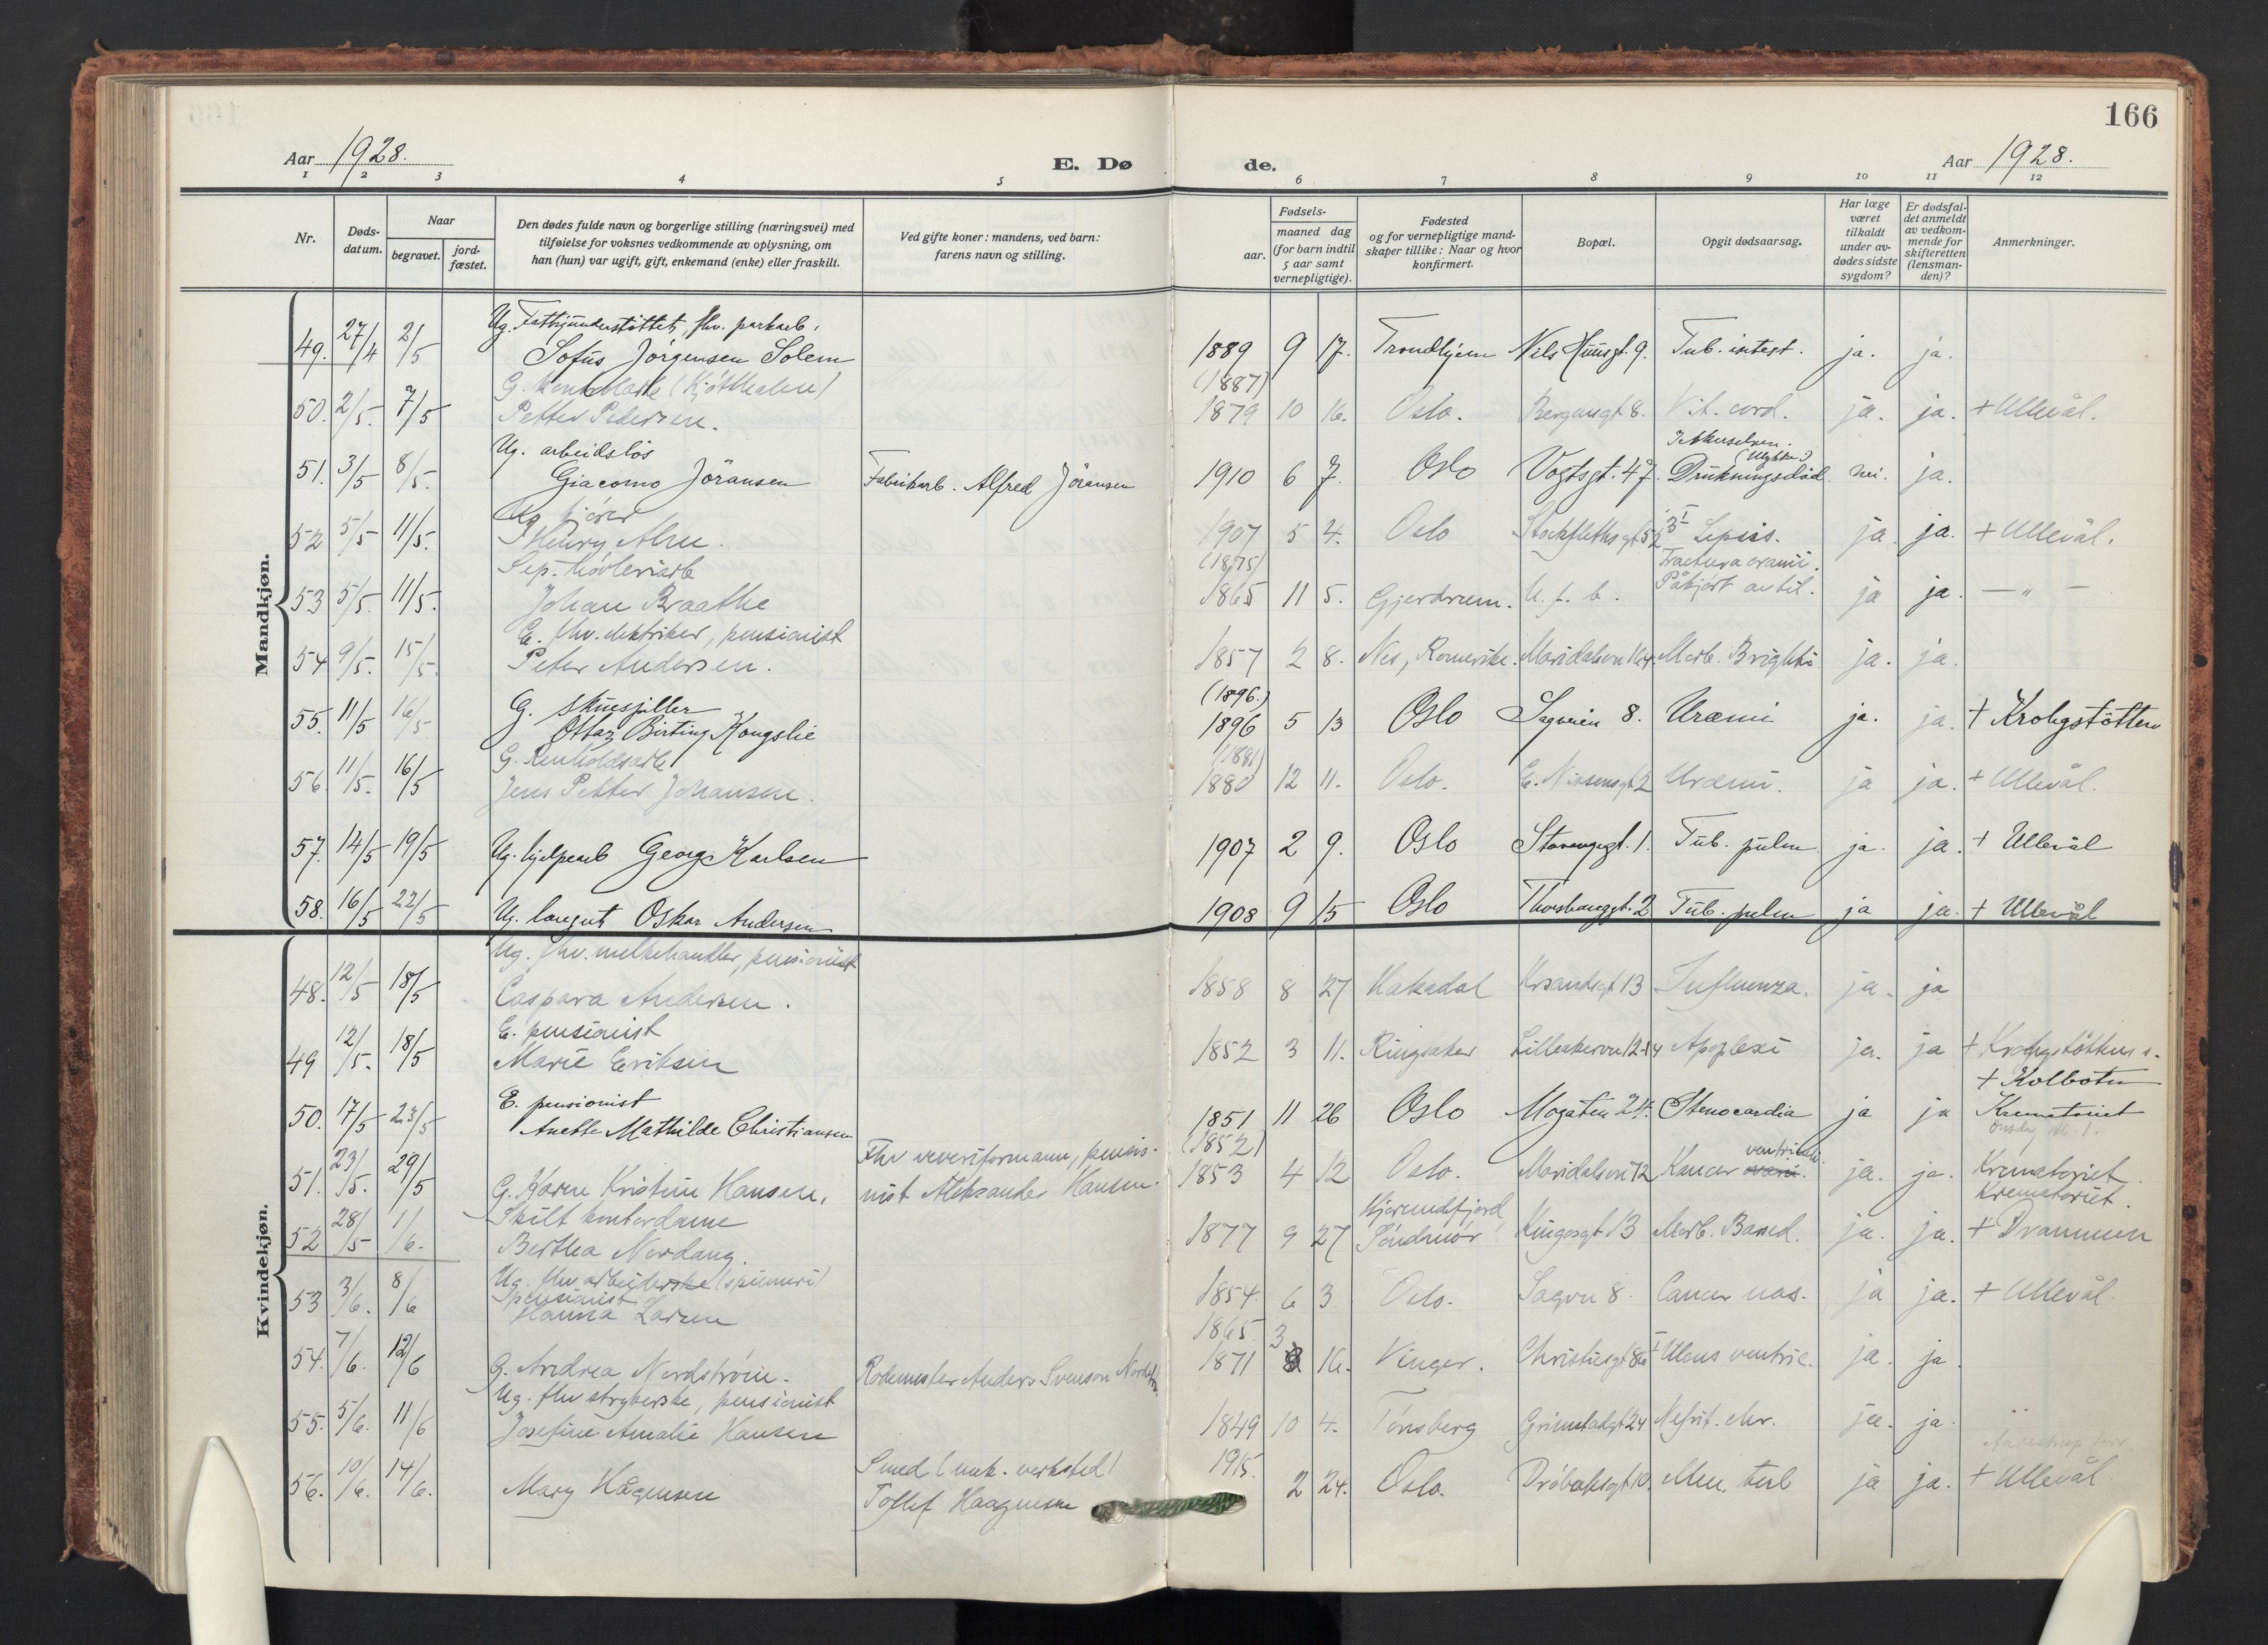 166
Aar 1928.
E. Døde.
Aar 1928.
1 2 3 4 5 6 7 8 9 10 11 12
Nr.
Døds-datum.
Naar
begravet.
jord-fæstet.
Den dødes fulde navn og borgerlige stilling (næringsvei) med
tilføielse for voksnes vedkommende av oplysning, om
han (hun) var ugift, gift, enkemand (enke) eller fraskilt.
Ved gifte koner: mandens, ved barn:
farens navn og stilling.
Fødsels-
aar.
maaned dag
(for barn indtil
5 aar samt
vernepligtige).
Fødested
og for vernepligtige mand-
skaper tillike: Naar og hvor
konfirmert.
Bopæl.
Opgit dødsaarsag.
Har læge
været
tilkaldt
under av-
dødes sidste
sygdom?
Er dødsfal-
det anmeldt
av vedkom-
mende for
skifteretten
(lensman-
den)?
Anmerkninger.
Mandkjøn.
Ug. Fattigunderstöttet, fhv. parkarb.
49. 27/4 2/5 Sofus Jörgensen Solem 1889 9 17. Trondhjem Nils Huusgt. 9. Tub. intest. ja. ja.
G. (Kjötthalen) (1887)
50. 2/5. 7/5 Petter Pedersen. 1879 10 16. Oslo. Bergensgt 8. Vit. cord. ja. ja. + Ullevål.
Ug. arbeidslös
51. 3/5 8/5. Giacomo Jöransen Fabrikarb. Alfred Jöransen 1910 6 7. Oslo Vogtsgt. 47. Drukningsdöd nei. ja.
Ug.
52 5/5 11/5. Henry Alm. 1907 5 4. Oslo Stockflethsgt 52 Sepsis. ja ja. + Ullevål.
Sep. høvleriarb (1875) Fractura cranii.
53 5/5. 11/5. Johan Braathe 1865 11 5. Gjerdrum. U. f. b. Påkjørt av bil. ja ja. — " —
E. fhv. elektriker, pensionist
54 9/5. 15/5. Peter Andersen. 1857 2 8. Nes, Romerike. Maridalsvn 164. Morb. Brighti ja. ja.
G. skuespiller (1896.)
55. 11/5 16/5 Ottar Birting Kongslie 1896 5 13 Oslo Sagveien 8. Uræmi ja. ja. + Krohgstötten
G. Renholdsarb (1881)
56. 11/5. 16/5 Jens Petter Johansen. 1880 12 11. Oslo. E. Nissensgt 2 Uræmi. ja ja. + Ullevål.
57. 14/5 19/5 Ug. hjelpearb Georg Karlsen 1907 2 9. Oslo Stavangergt. 1. Tub. pulm. ja. ja. + Ullevål
58. 16/5 22/5 Ug. Oskar Andersen 1908 9 15 Oslo Thorshauggt. 2 Tub. pulm ja ja. + Ullevål
Kvindekjøn.
Ug. fhv. melkehandler, pensionist
48. 12/5 18/5 Caspara Andersen. 1858 8 27 Hakadal Krsandsgt 13 Influenza. ja. ja
E. pensionist
49 12/5. 18/5 Marie Eriksen 1852 3 11. Ringsaker Lilleakervn 12-14 Apoplexi ja. ja + Krohgstöttens s.
E. pensionist + Kolbotn
50. 17/5 23/5 Anette Mathilde Christiansen 1851 11 26 Oslo Mogaten 24. Stenocardia ja ja Krematoriet
Fhv veveriformann, pensio- (1852) ventriculi.
51. 23/5. 29/5 G. Karen Kristine Hansen. nist Aleksander Hansen. 1853 4 12 Oslo. Maridalsvn 72 Kancer ovarii. ja. ja. Krematoriet.
Skilt kontordame Hjørundfjord, Krematoriet.
52 28/5 1/6. Bertha Nordang. 1877 9 27 Söndmör Kingosgt 13 Morb. Based. ja. ja. + Drammen
Ug. fhv arbeiderske (spinneri)
pensionist
53 3/6. 8/6 Hanna Larsen 1854 6 3 Oslo. Sagvn 8. Cancer nas. ja ja. + Ullevål
1865 3
54. 7/6. 12/6 G. Andrea Nordstrøm. Rodemester Anders Svenson 1871 16. Vinger. Christiesgt 86 Ulcus ventric. ja. ja.
Ug. fhv strykerske, pensionist
55. 5/6. 11/6 Josefine Amalie Hansen 1849 10 4. Tönsberg Grimstadgt 24 Nefrit. chr. ja. ja.
Smed (mek. verksted) 1915.
56. 10/6. 14/6. Mary Hågensen Tollef Haagensen 2 24. Oslo. Dröbaksgt 10. Men. tub ja ja. + Ullevål